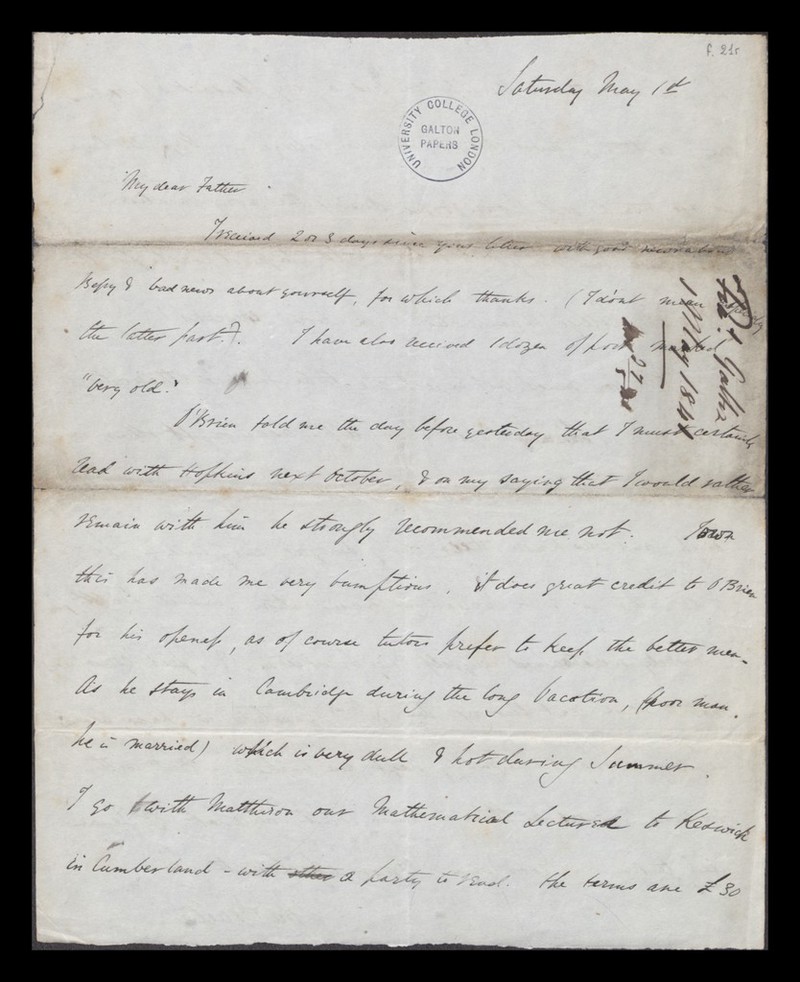 f. 21r
Saturday May 1st
UNIVERSITY COLLEGE LONDON
GALTON
PAPERS
My dear Father
I received 2 or 3 days since your letter with good news about
Bessy & bad news about yourself, for which thanks. (I do'nt mean
the latter part.). I have also received 1 dozen of port marked
"very old."
O'Brien told me the day before yesterday that I must certainly
read with Hopkins next October, & on my saying that I would rather
remain with him he strongly recommended me not. I own
this has made me very bumptious, it does great credit to O'Brien
for his openess, as of course tutors prefer to keep the better men.
As he stays in Cambridge during the long Vacation, (poor man,
he is married) which is very dull & hot during Summer.
I go with Matthison our Mathematical Lecturer to Keswick
in Cumberland - with other a party to read. the terms are £30
Galton
May 1841